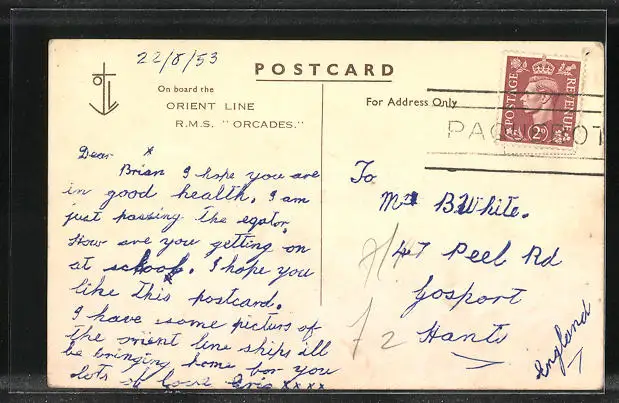 22/8/53
POSTCARD
On board the
ORIENT LINE
R.M.S. "ORCADES."
For Address Only
POSTAGE REVENUE
2D
PAQ OT
Dear
Brian I hope you are
in good health. I am
just passing the eqator.
How are you getting on
at school. I hope you
like this postcard.
I have some picturs of
the orient line ships ill
be bringing home for you
lots of love Eric xxxx
To
B.White.
47 Peel Rd
Gosport
Hants
England